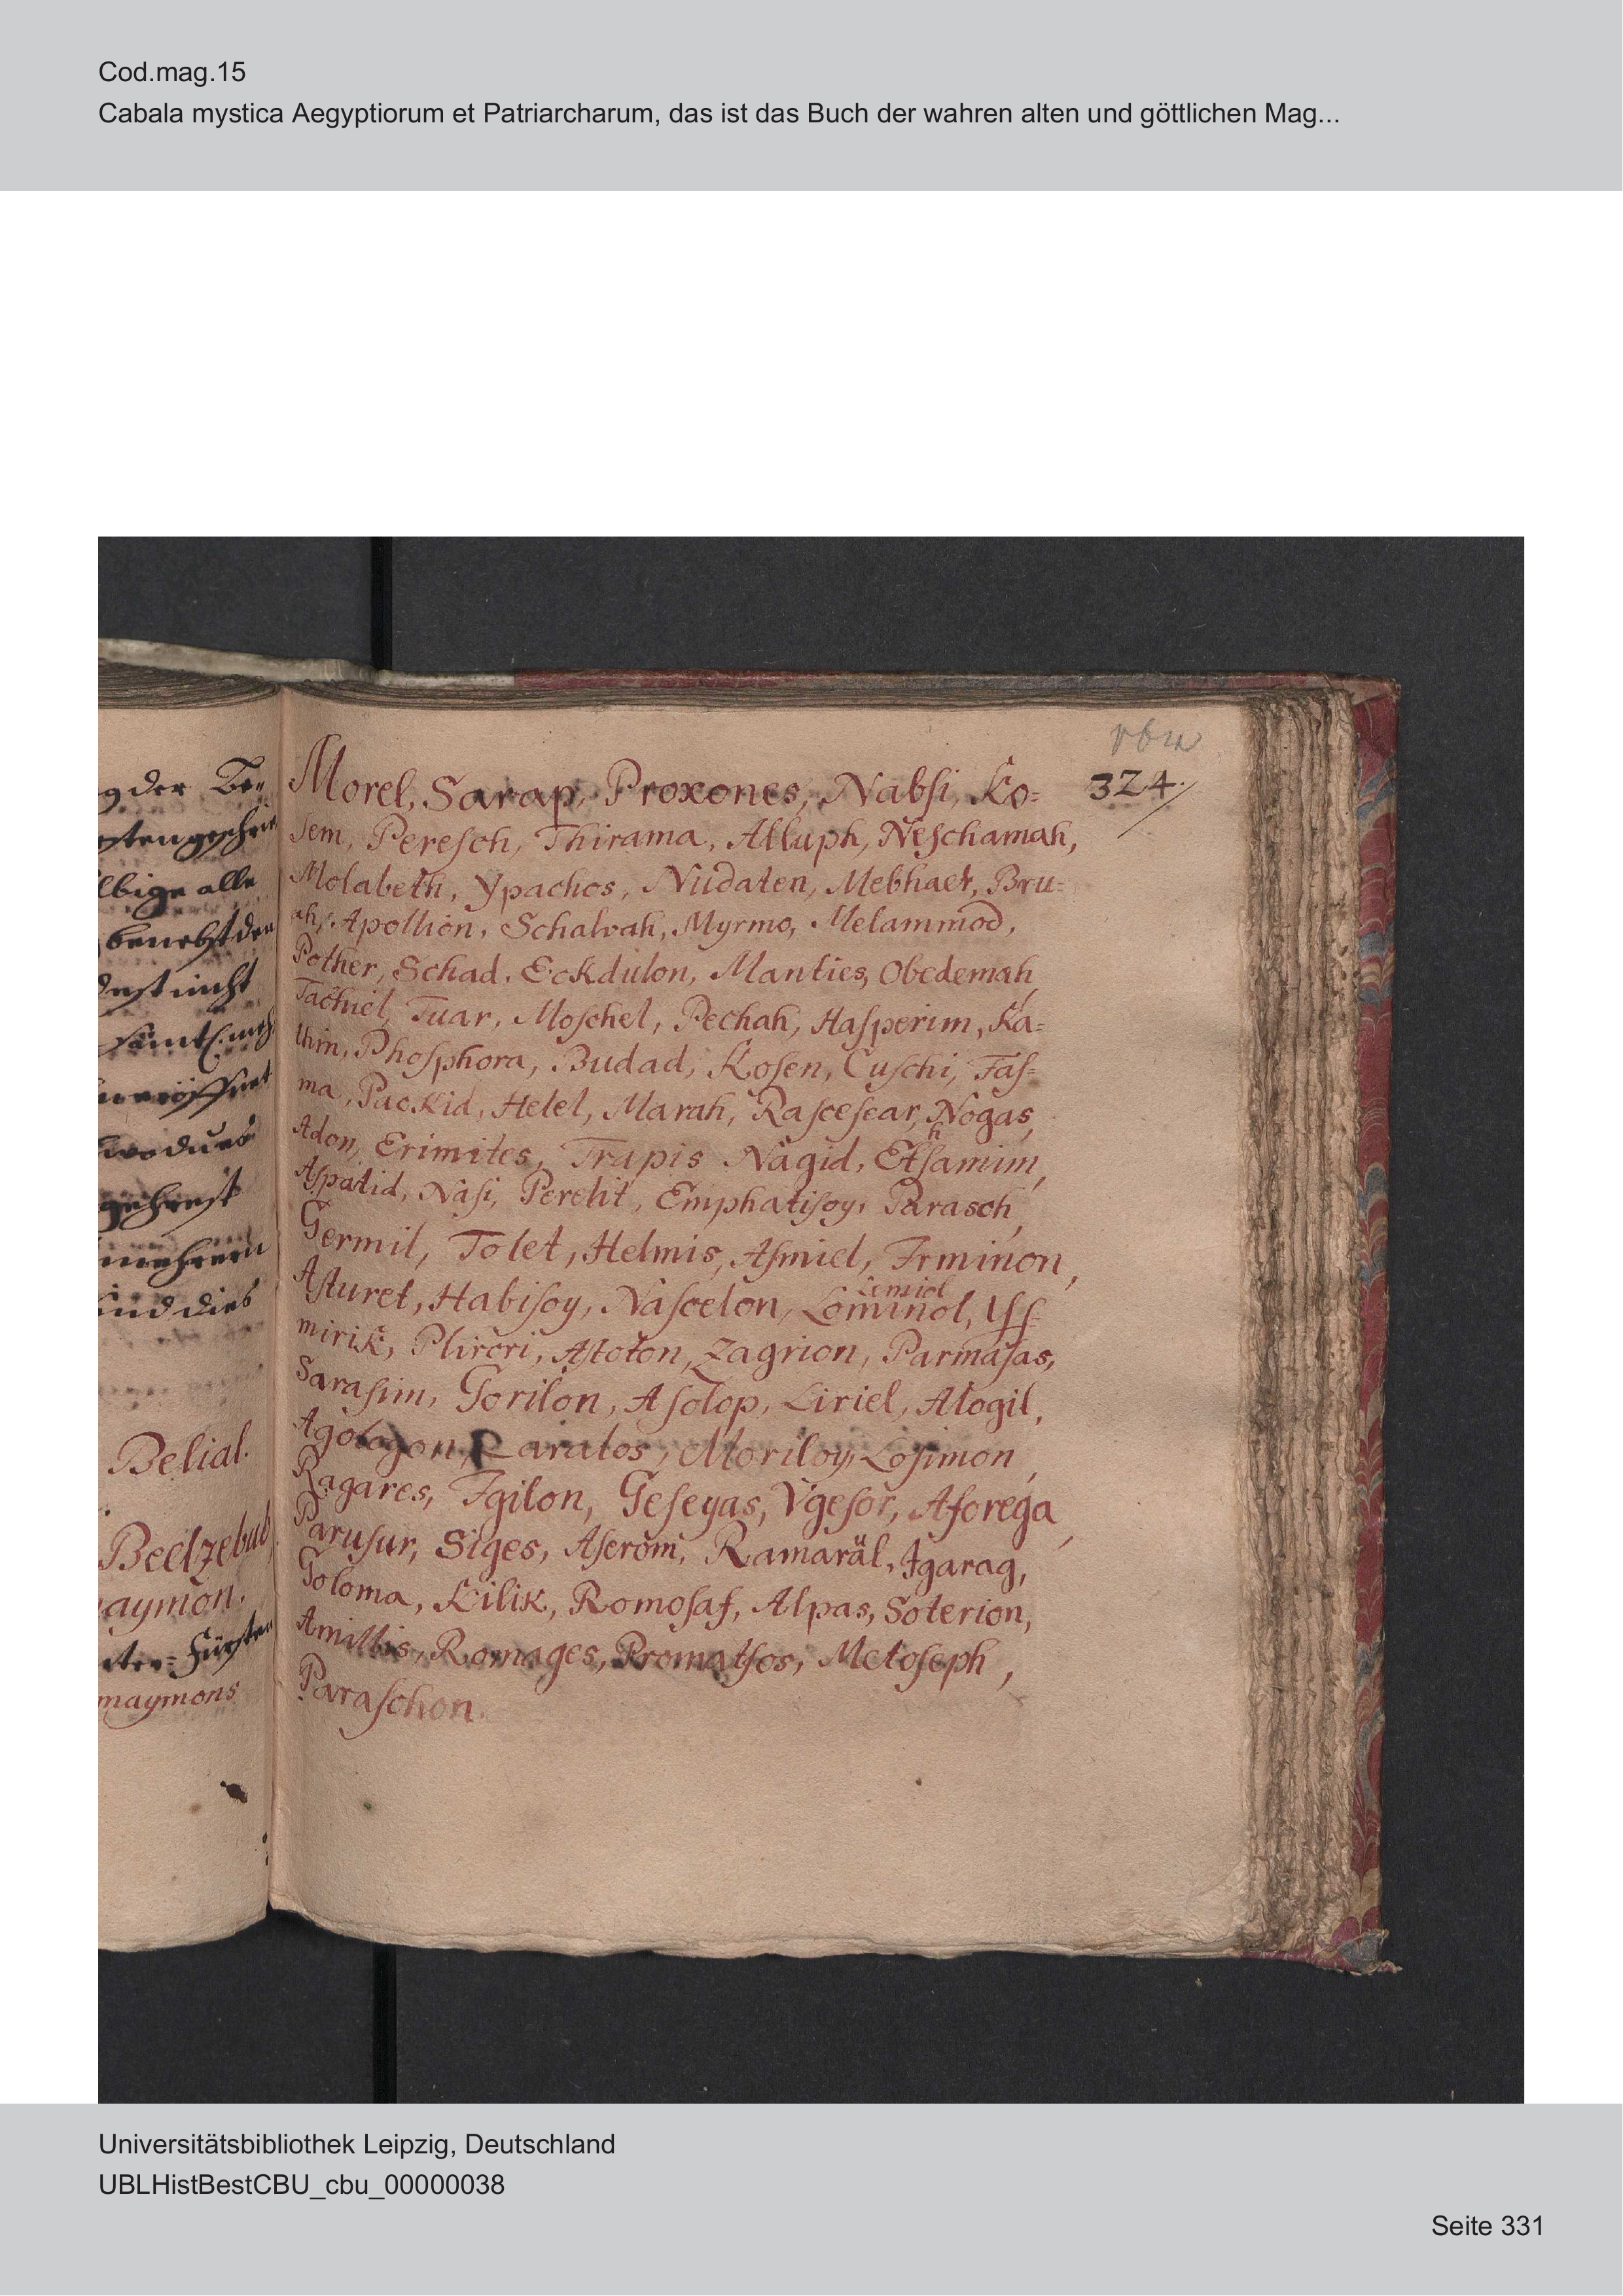 Cod.mag.15
Cabala mystica Aegyptiorum et Patriarcharum, das ist das Buch der wahren alten und göttlichen Mag...
324.
Morel, Sarap, Proxones, Nabſi, Ko=
sem, Pereſch, Thirama, Alluph, Neſchamah,
Molabeth, Ypachos, Nudaten, Mebhaer, Bru=
ah, Apollion, Schalvah, Myrmo, Melammod,
Pother, Schad, Eckdulon, Manties, Obedemah,
Tachiel, Tuar, Moſchel, Pechah, Haſperim, Ka=
thim, Phoſphora, Budad, Koſen, Cuſchi, Faſ=
ma, Packid, Helel, Marah, Raſceſear, Nogas,
Adon, Erimites, Trapis Nagid, Ethſamim,
Aſpatid, Naſi, Perelit, Emphatiſoy, Parasch,
Germil, Tolet, Helmis, Aſmiel, Irminon,
Aſturet, Habiſoy, Naſcelon,
Lemiol
Lominol, Yſſ=
mirik, Plirori, Aſtoton, Zagrion, Parmaſas,
Saraſim, Gorilon, Aſolop, Liriel, Alogil,
Agologon, Laralos, Moriloy, Loſimon,
Ragares, Igilon, Geſeyas, Vgeſor, Aſorega,
Paruſur, Siges, Aſerom, Ramaräl, Igarag,
Goloma, Kilik, Romoſaf, Alpas, Soterion,
Amillis, Romages, Promatſos, Metoſeph,
Paraſchon.
g der
lbige alle
benebst der
nicht
Belial.
Beelzebub,
aymon.
Fürsten
maymons
Universitätsbibliothek Leipzig, Deutschland
UBLHistBestCBU_cbu_00000038
Seite 331